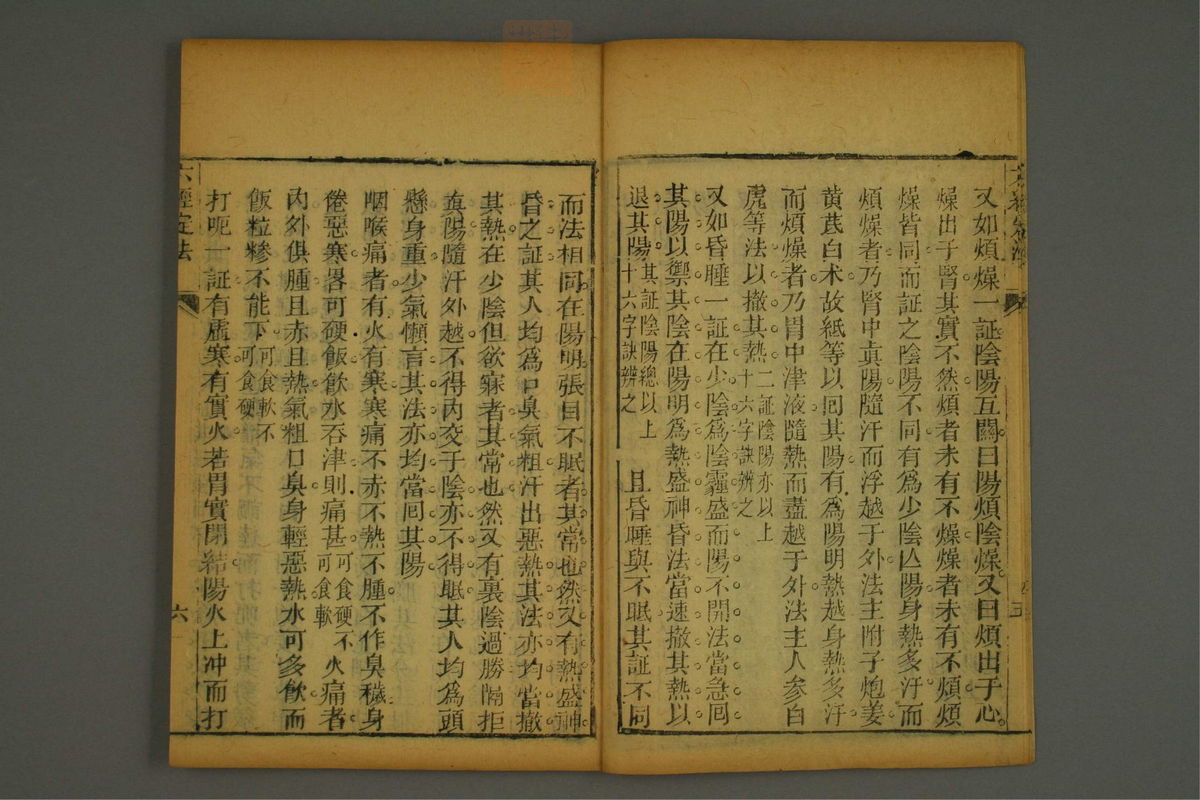 又如煩燥一証陰陽互關曰陽煩陰燥又曰煩出于心
燥出于腎其實不然煩者未有不燥燥者未有不煩煩
燥皆同而証之陰陽不同有為少陰亾陽身熱多汗而
煩燥者乃腎中眞陽隨汗而浮越于外法主附子炮姜
黄芪白术故紙等以囘其陽有為陽明熱越身熱多汗
而煩燥者乃胃中津液隨熱而盡越于外法主人参白
虎等法以撤其熱二証陰陽亦以上十六字訣辨之
又如昏睡一証在少陰為陰霾盛而陽不開法當急囘
其陽以禦其陰在陽明為熱盛神昏法當速撤其熱以
退其陽其証陰陽總以上十六字訣辨之 且昏睡與不眠其証不同
而法相同在陽明張目不眠者其常也然又有熱盛神
昏之証其人均為口臭氣粗汗出惡熱其法亦均當撤
其熱在少陰但欲寐者其常也然又有裏陰過勝隔拒
眞陽隨汗外越不得内交于陰亦不得眠其人均為頭
懸身重少氣懶言其法亦均當囘其陽
咽喉痛者有火有寒寒痛不赤不熱不腫不作臭穢身
倦惡寒畧可硬飯飲水吞津則痛甚可食硬不可食軟 火痛者
内外俱腫且赤且熱氣粗口臭身輕惡熱水可多飲而
飯粒糝不能下可食軟不可食硬
打呃一証有虛寒有實火若胃實閉結陽火上冲而打
六經定法
六